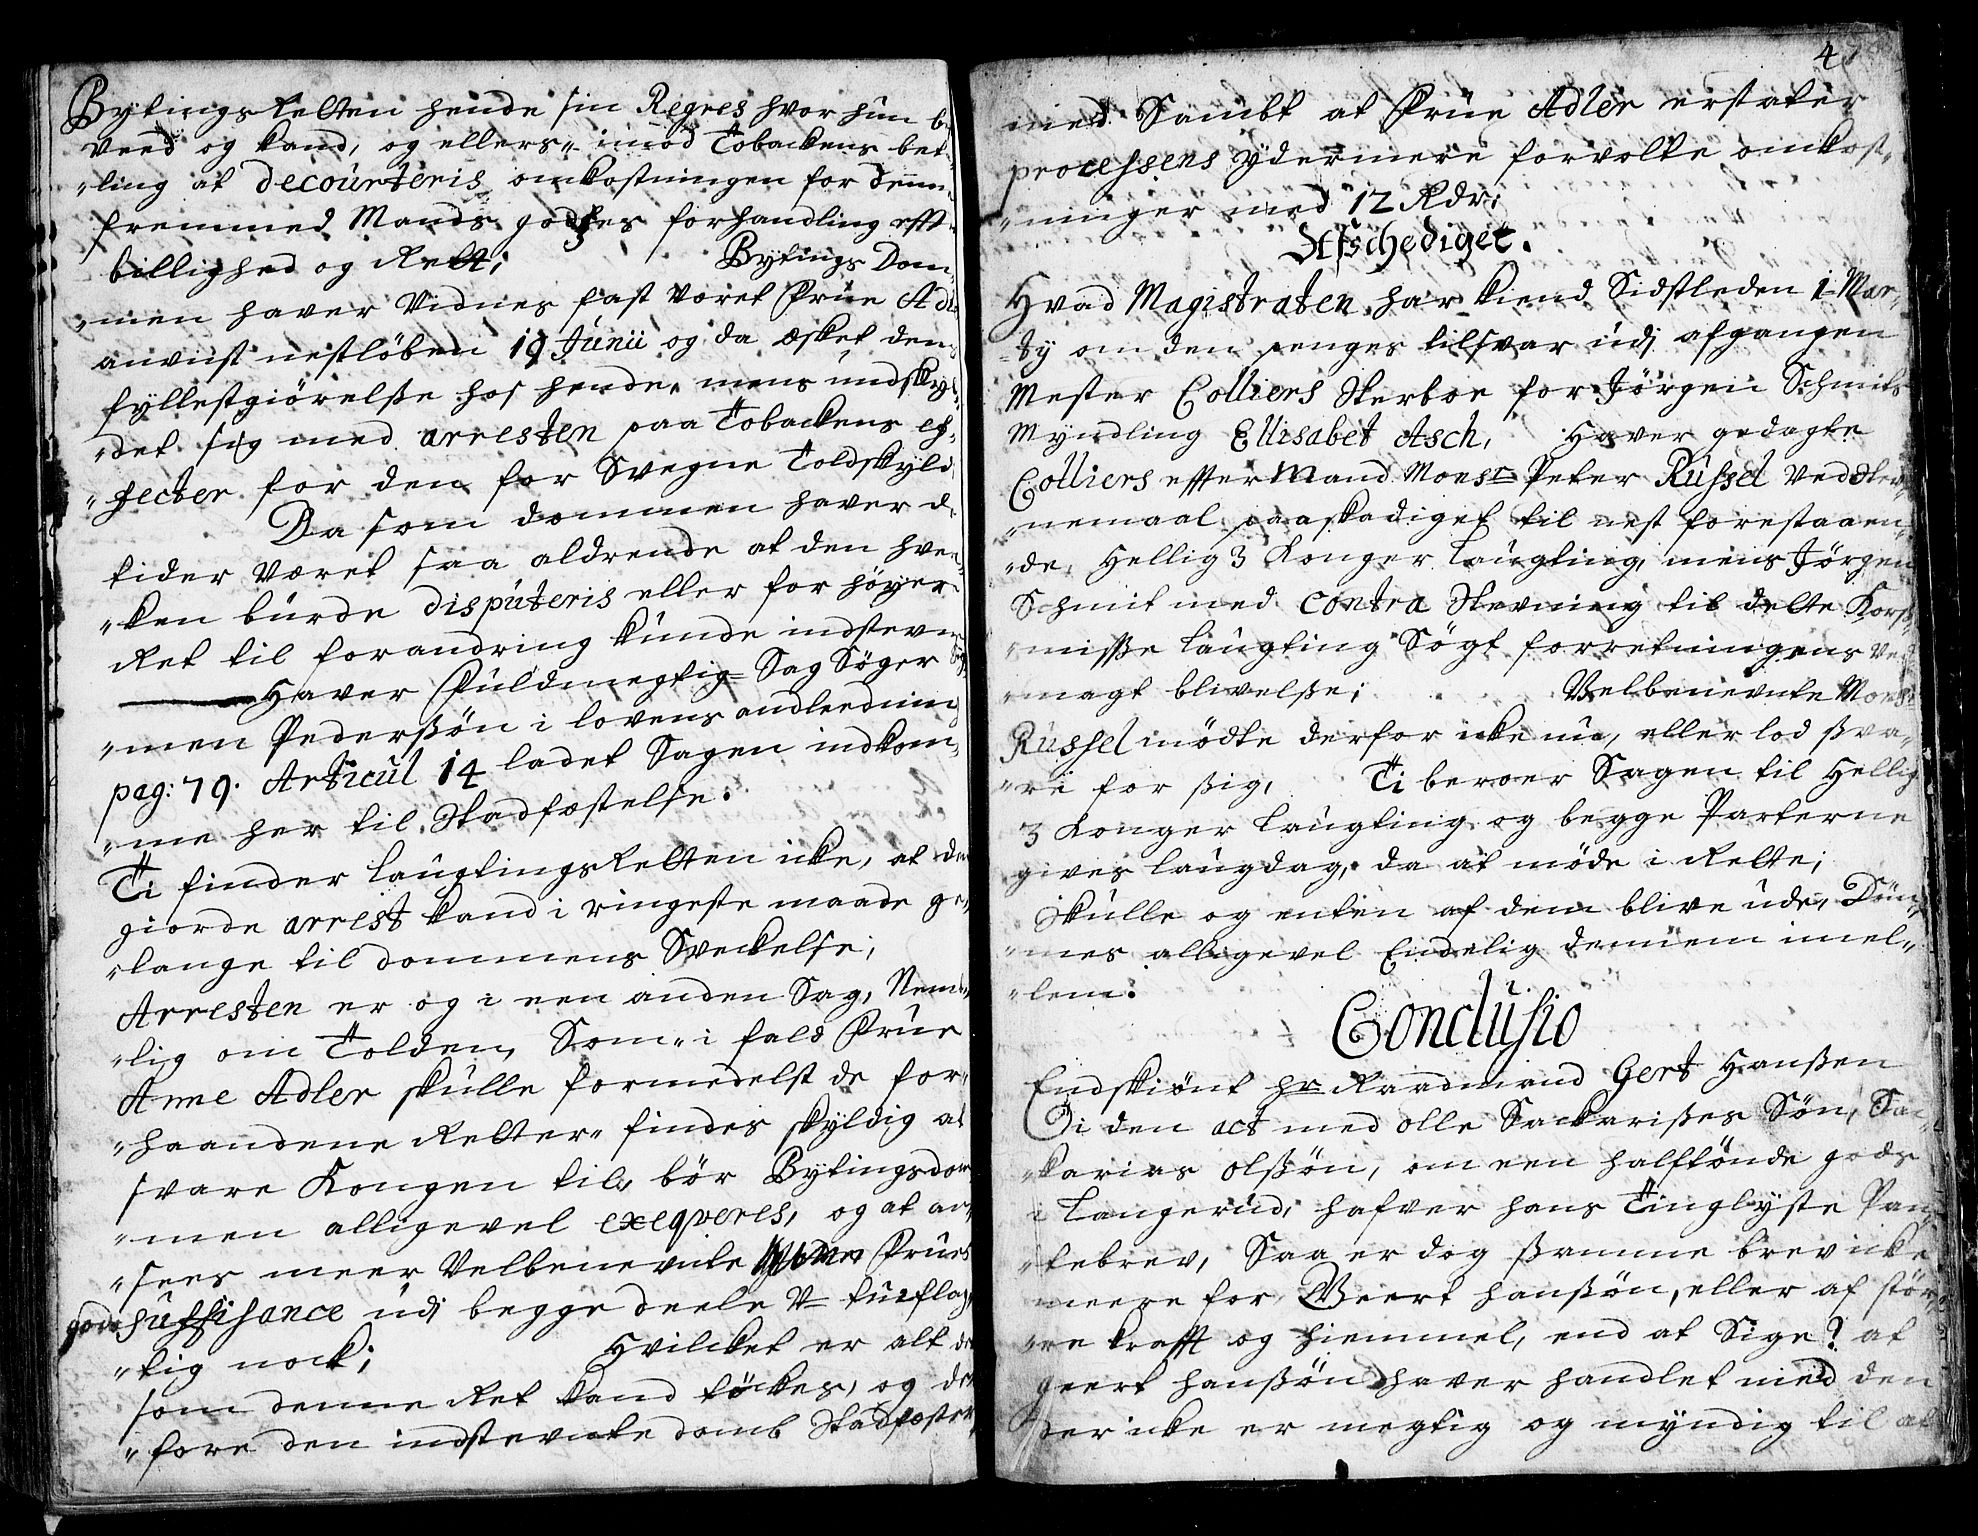 Bytings Retten hende sin Regres hvor hun b
veed og kand, og ellers„ imod Tobackens bet„
„ling at decourteris omkostningen for denn
fremmed Mands godses forhandling efft
billighed og Rett; Bytings Dom„
„men haver Vidnes fast været Frue Adl
anviist nestløben 19 Junii og da æsket dens
fyllestgiørelße hos hende„ mens undskyl„
„det sig med arresten paa Tobackens ef„
„fecter for den for Svegne Toldskyld,
Da som dommen haver d
tider været saa aldrende at den hver„
„ken burde disputeris eller for høyer
Ret til forandring kunde indstevn
Haver Fuldmegtig Sag Søger
„men Pederßøn i lovens andleedning
pag: 79. Articul 14 ladet Sagen indkom„
„me her til Stadfæstelse.
Ti finder Laugtings Retten icke, at de
giorde arrest kand i ringeste maade ge„
„lange til dommens Sveckelse;
Arresten er og i een anden Sag, Nem„
„lig om Tolden, Som„ i fald Frue
Anne Adler skulle formedelst de for„
„haandene Retter„ findes skyldig at
svare Kongen til, bør Bytingsdom
„men alligevel exeqveres, og at an„
„sees meer Velbenevnte Frues
gode suffisance udi begge deele tilflag„
„tig nock; Hvilcket er alt d
som denne Ret kand tøckes, og de
„fore den indstevnte domb Stadfæster
4
med Sambt at Frue Adler erstater
processens ydermere forvolte omkost„
„ninger med 12 Rdr;
Afschediget.
Hvad Magistraten har kiend Sidstleden 1 Mar„
„ty om den penges tilsvar udi afgangen
Mester Colliers Sterboe for Jørgen Schmits
Myndling Ellisabet Asch, Haver gedagte
Colliers efftermand Monsr Peter Russel ved Stev„
„nemaal paaskadiget til nest forestaaen„
„de, Hellig 3 Konger Laugting, mens Jørgen
Schmit med Contra Stevning til dette Kors„
„misse Laugting Søgt forretningens ved
„magt blivelße; Velbenevnte Monsr
Russel mødte derfor icke nu, eller lod ßva„
„re for ßig, Ti beroer Sagen til Hellig
3 Konger Laugting og begge Parterne
gives laugdag, da at møde i Rette;
Skulle og enten af dem blive ude, Døm„
„mes alligevel Endelig dennem imel„
„lem.
Conclusio
Endskiønt hr Raadmand Gert Hanßen
Vi den act med Olle Sackarißes Søn, Sa„
„karias Olßøn, om een halftønde gods
i Langerud, hafver hans Tinglyste Pan„
„tebrev, Saa er dog ßamme brev icke
meere for Geert Hanßøn, eller af stør„
„re krafft og hiemmel, end at Sige? at
Geert Hanßøn haver handlet med den
der icke er megtig og myndig til at